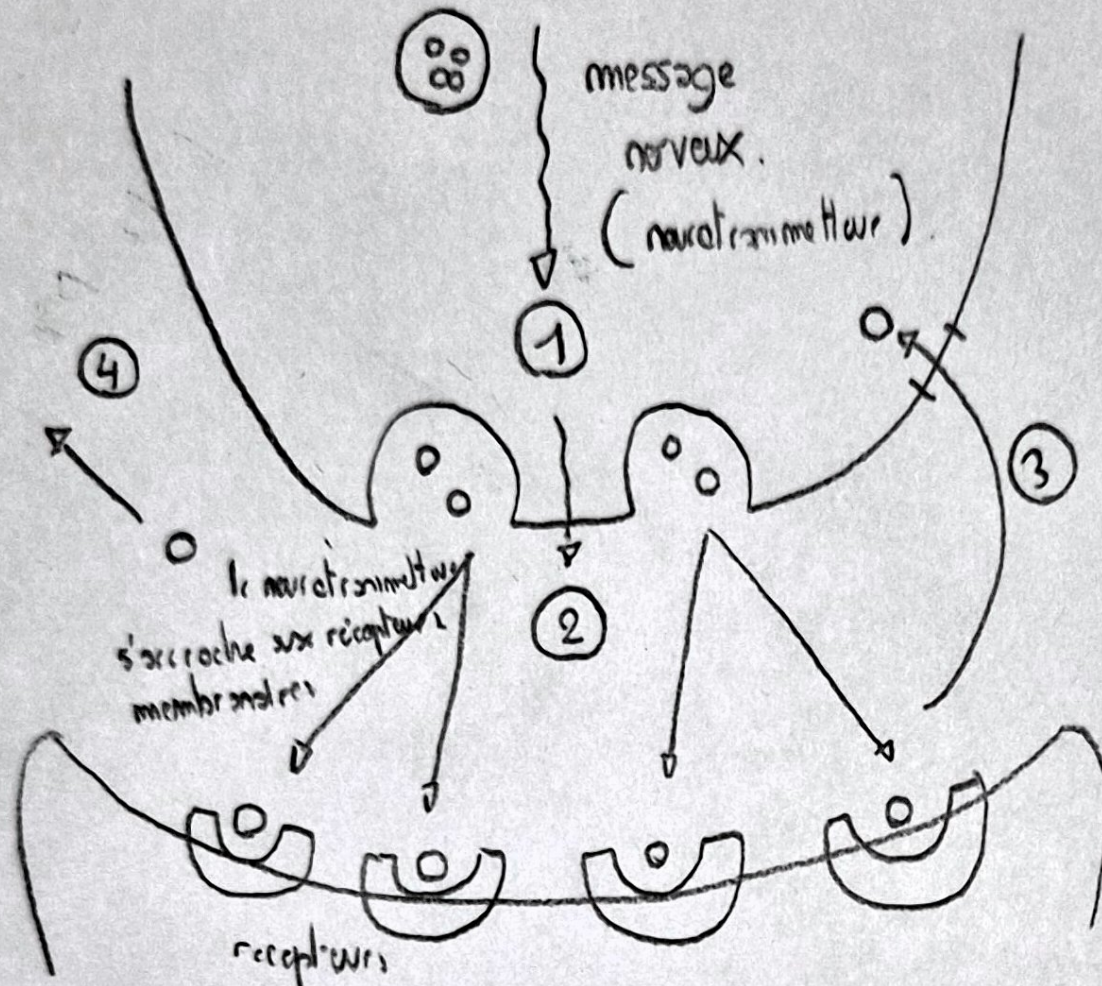 message
nerveux.
(neurotransmetteur).
1
4
3
le neurotransmetteur
2
s'accroche aux récepteurs
membranaires
recepteurs